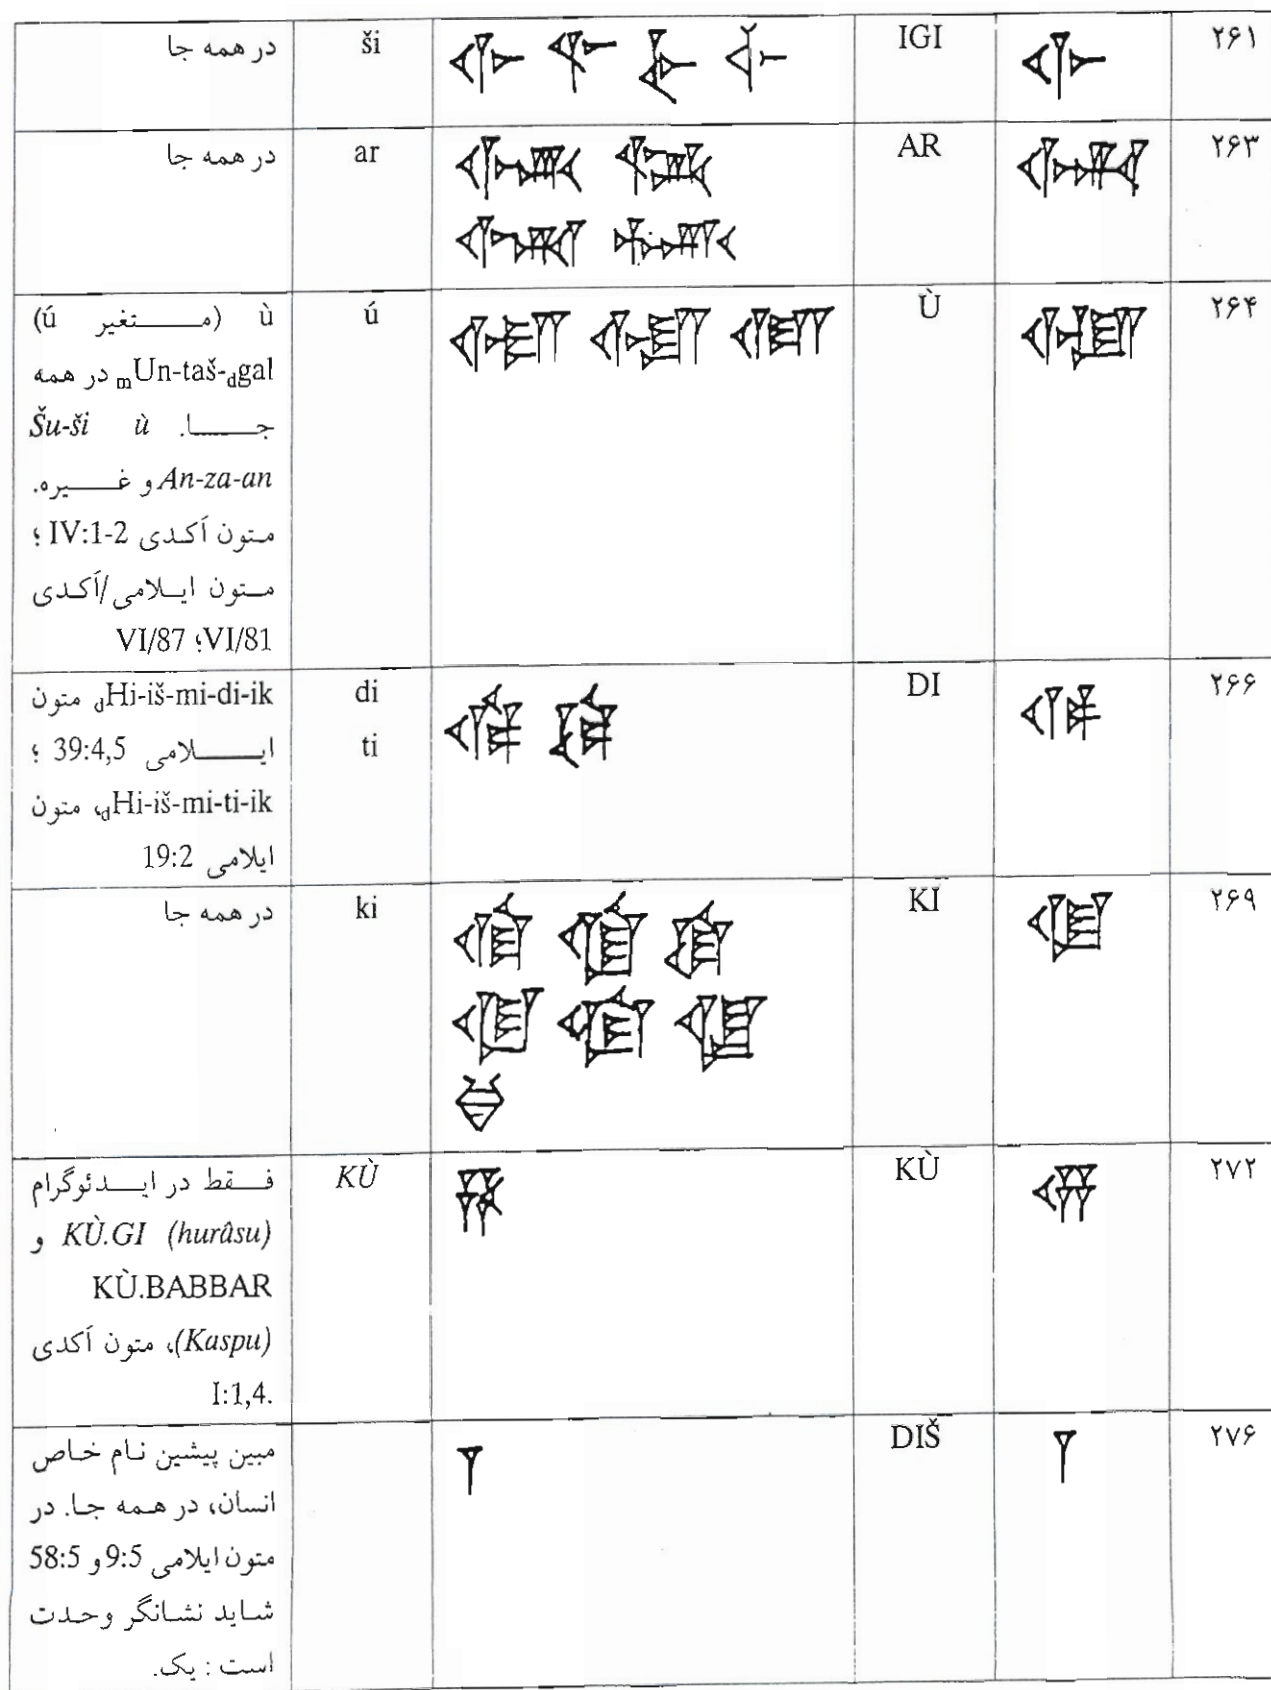 ۲۶۱ IGI ši در همه جا
۲۶۳ AR ar در همه جا
۲۶۴ Ù ú ù (متغیر ú)
mUn-taš-dgal در همه
جا. Šu-ši ù
An-za-an و غیره.
متون اَکدی IV:1-2 ؛
متون ایلامی/اَکدی
VI/81؛ VI/87
۲۶۶ DI di dHi-iš-mi-di-ik متون
ti ایلامی 39:4,5 ؛
dHi-iš-mi-ti-ik، متون
ایلامی 19:2
۲۶۹ KI ki در همه جا
۲۷۲ KÙ KÙ فقط در ایدئوگرام
KÙ.GI (hurâsu) و
KÙ.BABBAR
(Kaspu)، متون اَکدی
I:1,4.
۲۷۶ DIŠ مبین پیشین نام خاص
انسان، در همه جا. در
متون ایلامی 9:5 و 58:5
شاید نشانگر وحدت
است : یک.